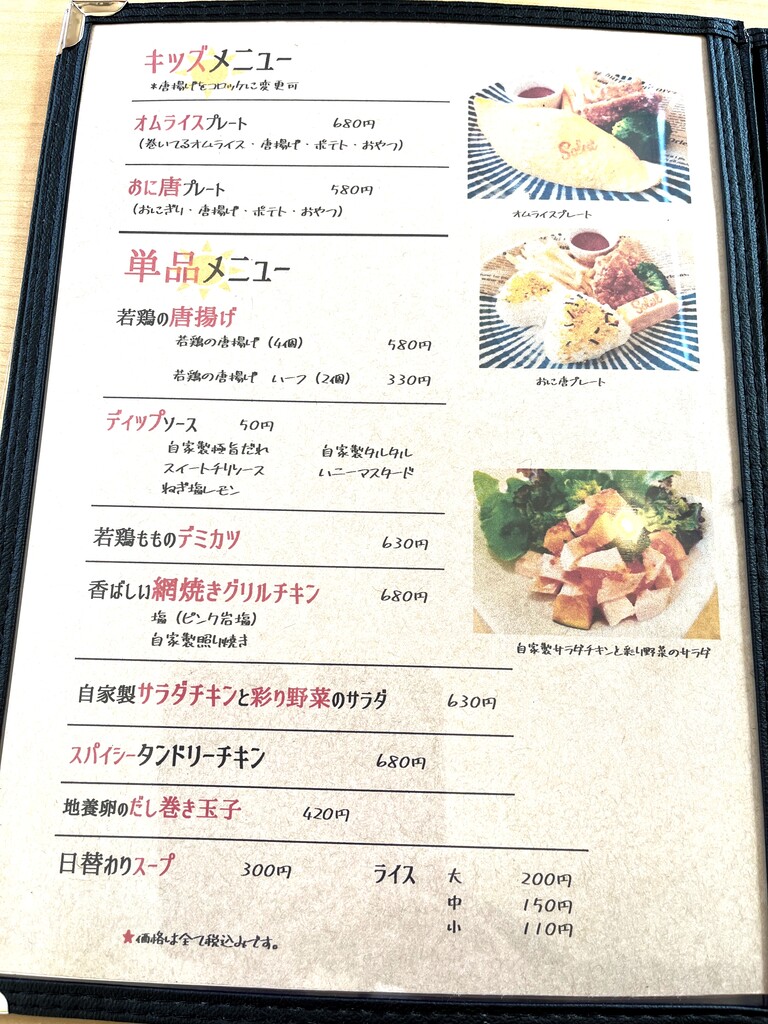 キッズメニュー
*唐揚げをコロッケに変更可
オムライスプレート 680円
(巻いてるオムライス・唐揚げ・ポテト・おやつ)
おに唐プレート 580円
(おにぎり・唐揚げ・ポテト・おやつ)
オムライスプレート
おに唐プレート
単品メニュー
若鶏の唐揚げ
若鶏の唐揚げ (4個) 580円
若鶏の唐揚げ ハーフ (2個) 330円
ディップソース 50円
自家製極旨だれ 自家製タルタル
スイートチリソース ハニーマスタード
ねぎ塩レモン
若鶏もものデミカツ 630円
香ばしい網焼きグリルチキン 680円
塩 (ピンク岩塩)
自家製照り焼き
自家製サラダチキンと彩り野菜のサラダ
自家製サラダチキンと彩り野菜のサラダ 630円
スパイシータンドリーチキン 680円
地養卵のだし巻き玉子 420円
日替わりスープ 300円
ライス 大 200円
中 150円
小 110円
★価格は全て税込みです。